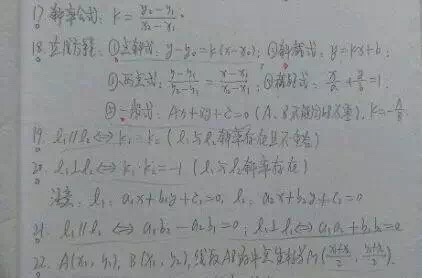 17. 斜率公式: k = (y₂-y₁)/(x₂-x₁).
18. 直线方程: ①点斜式: y-y₀=k(x-x₀); ②斜截式: y=kx+b;
③两点式: (y-y₁)/(y₂-y₁) = (x-x₁)/(x₂-x₁); ④截距式: x/a+y/b=1.
⑤一般式: Ax+By+C=0 (A、B不能同时为零). k=-A/B
19. l₁∥l₂⟺k₁=k₂ (l₁与l₂斜率存在且不重合)
20. l₁⊥l₂⟺k₁·k₂=-1 (l₁与l₂斜率存在)
注意: l₁: a₁x+b₁y+c₁=0, l₂: a₂x+b₂y+c₂=0
21. l₁∥l₂ ⟺ a₁b₂-a₂b₁=0; l₁⊥l₂⟺a₁a₂+b₁b₂=0
22. A(x₁, y₁), B(x₂, y₂), 线段AB的中点坐标为((x₁+x₂)/2, (y₁+y₂)/2)